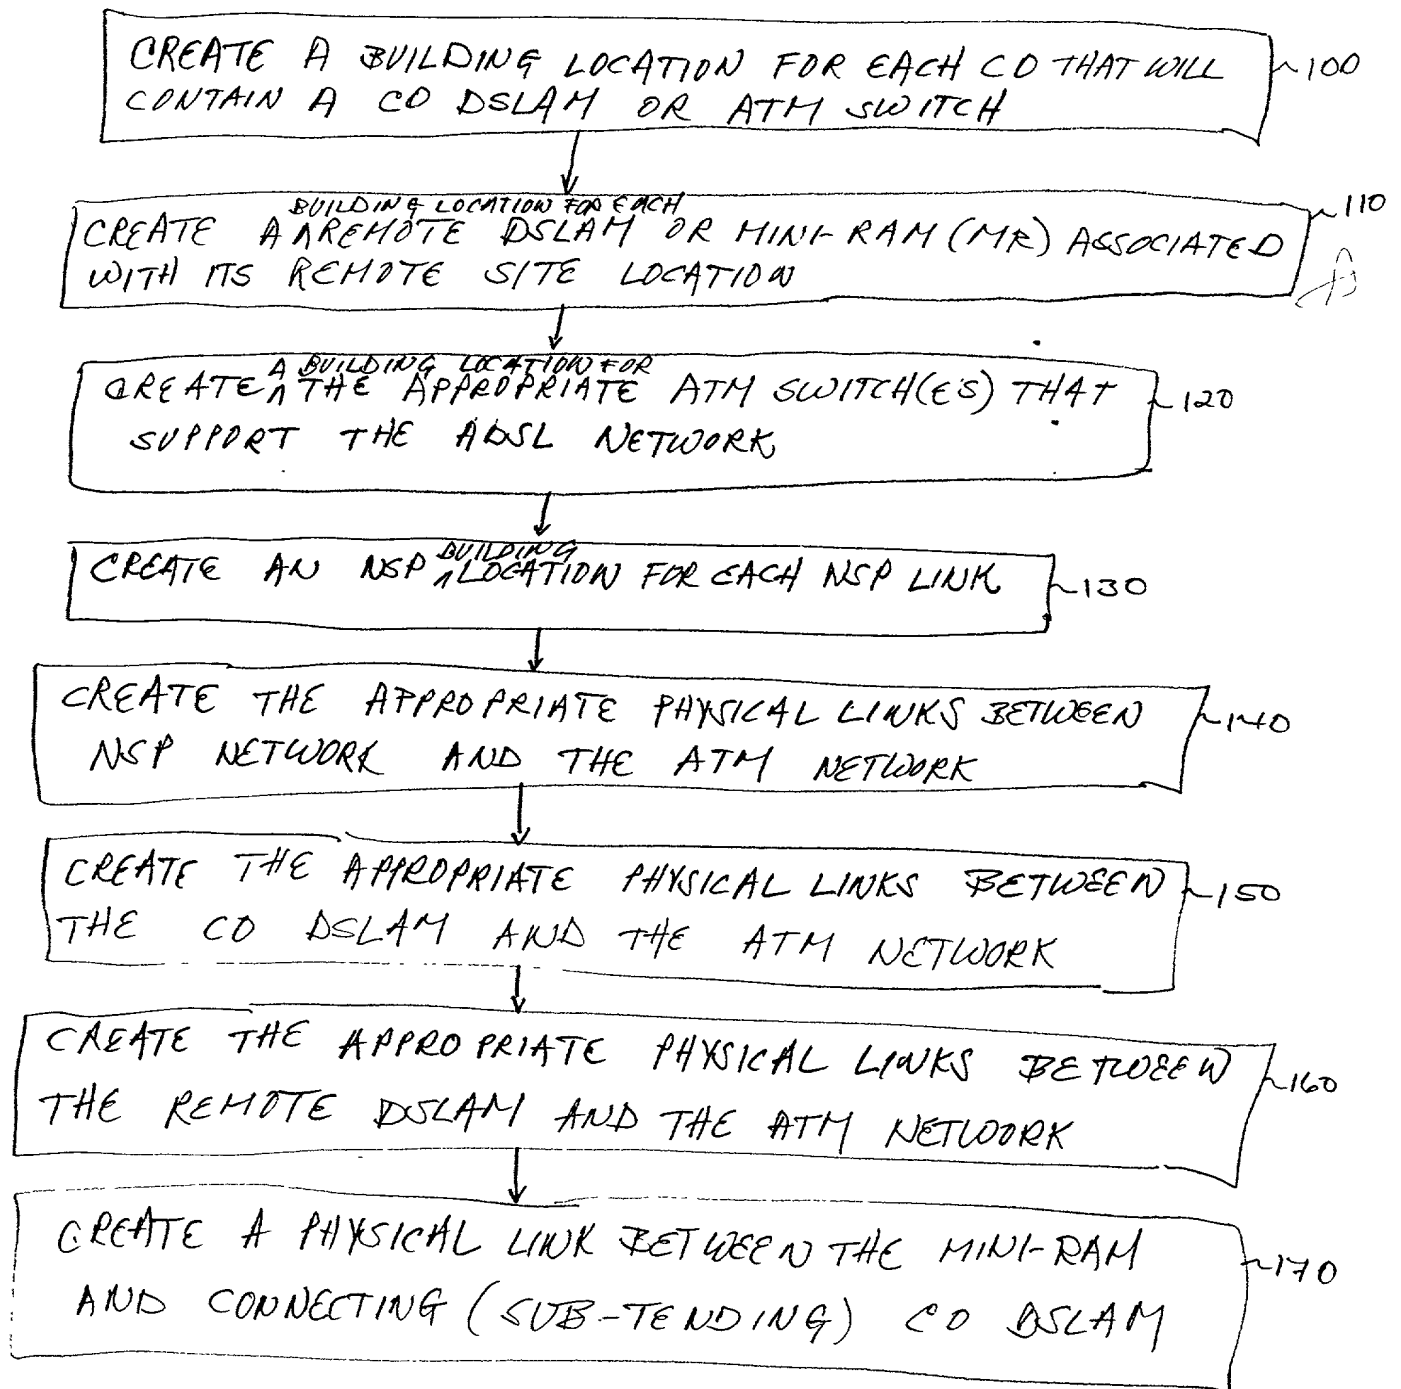 CREATE A BUILDING LOCATION FOR EACH CO THAT WILL
CONTAIN A CO DSLAM OR ATM SWITCH
100
BUILDING LOCATION FOR EACH
CREATE A ^ REMOTE DSLAM OR MINI-RAM (MR) ASSOCIATED
WITH ITS REMOTE SITE LOCATION
110
A BUILDING LOCATION FOR
CREATE ^ THE APPROPRIATE ATM SWITCH(ES) THAT
SUPPORT THE ADSL NETWORK
120
BUILDING
CREATE AN NSP ^ LOCATION FOR EACH NSP LINK
130
CREATE THE APPROPRIATE PHYSICAL LINKS BETWEEN
NSP NETWORK AND THE ATM NETWORK
140
CREATE THE APPROPRIATE PHYSICAL LINKS BETWEEN
THE CO DSLAM AND THE ATM NETWORK
150
CREATE THE APPROPRIATE PHYSICAL LINKS BETWEEN
THE REMOTE DSLAM AND THE ATM NETWORK
160
CREATE A PHYSICAL LINK BETWEEN THE MINI-RAM
AND CONNECTING (SUB-TENDING) CO DSLAM
170